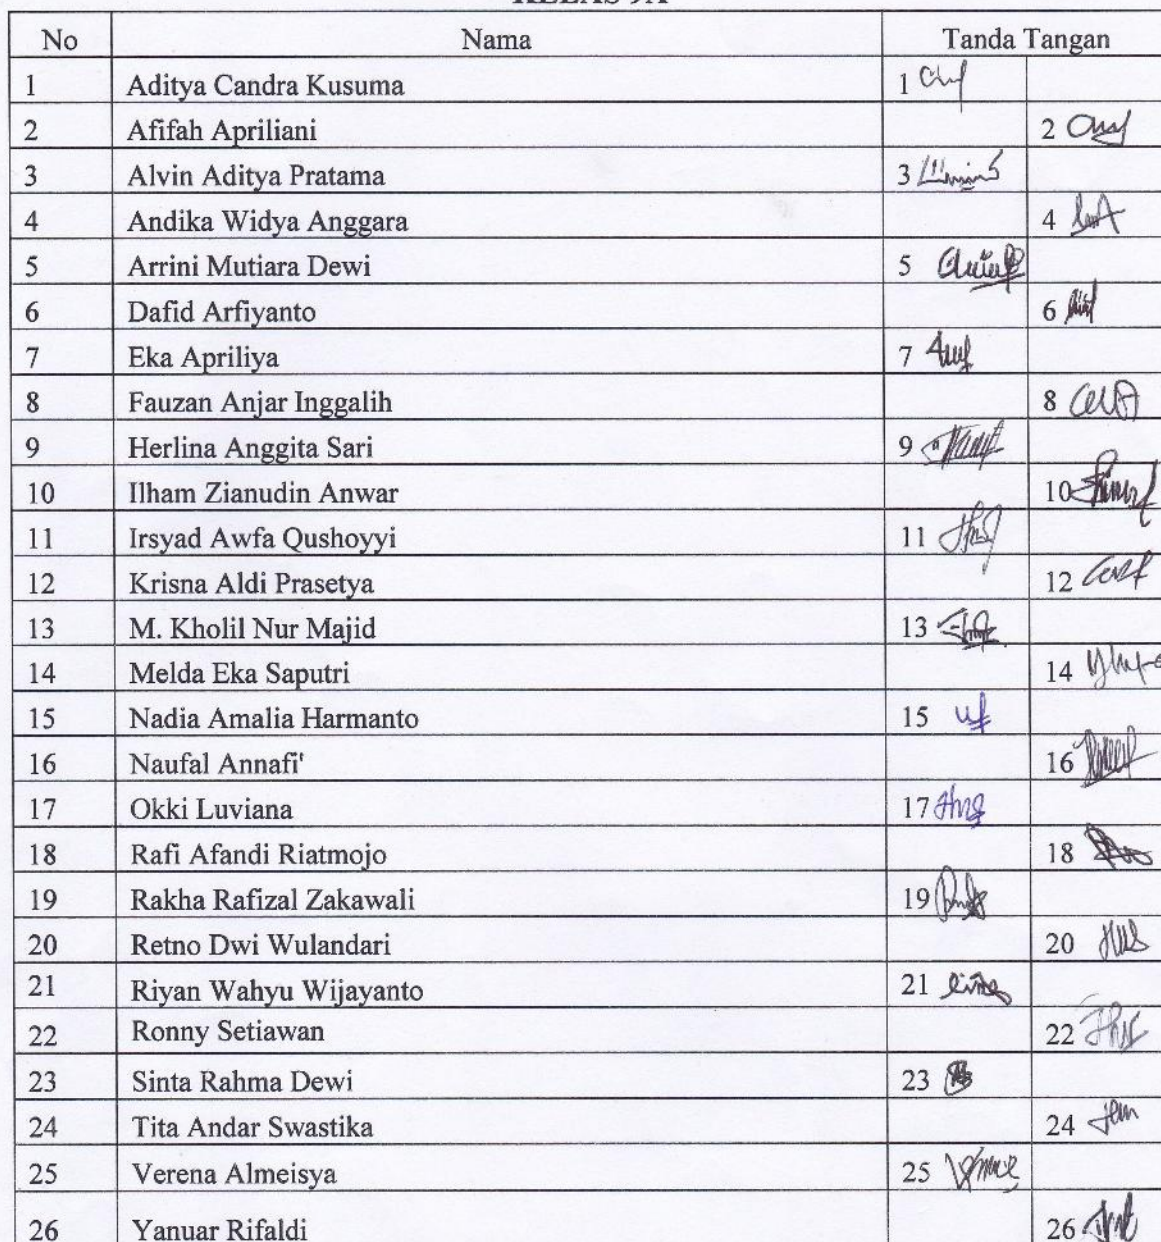 No Nama Tanda Tangan
1 Aditya Candra Kusuma 1
2 Afifah Apriliani 2
3 Alvin Aditya Pratama 3
4 Andika Widya Anggara 4
5 Arrini Mutiara Dewi 5
6 Dafid Arfiyanto 6
7 Eka Apriliya 7
8 Fauzan Anjar Inggalih 8
9 Herlina Anggita Sari 9
10 Ilham Zianudin Anwar 10
11 Irsyad Awfa Qushoyyi 11
12 Krisna Aldi Prasetya 12
13 M. Kholil Nur Majid 13
14 Melda Eka Saputri 14
15 Nadia Amalia Harmanto 15
16 Naufal Annafi' 16
17 Okki Luviana 17
18 Rafi Afandi Riatmojo 18
19 Rakha Rafizal Zakawali 19
20 Retno Dwi Wulandari 20
21 Riyan Wahyu Wijayanto 21
22 Ronny Setiawan 22
23 Sinta Rahma Dewi 23
24 Tita Andar Swastika 24
25 Verena Almeisya 25
26 Yanuar Rifaldi 26